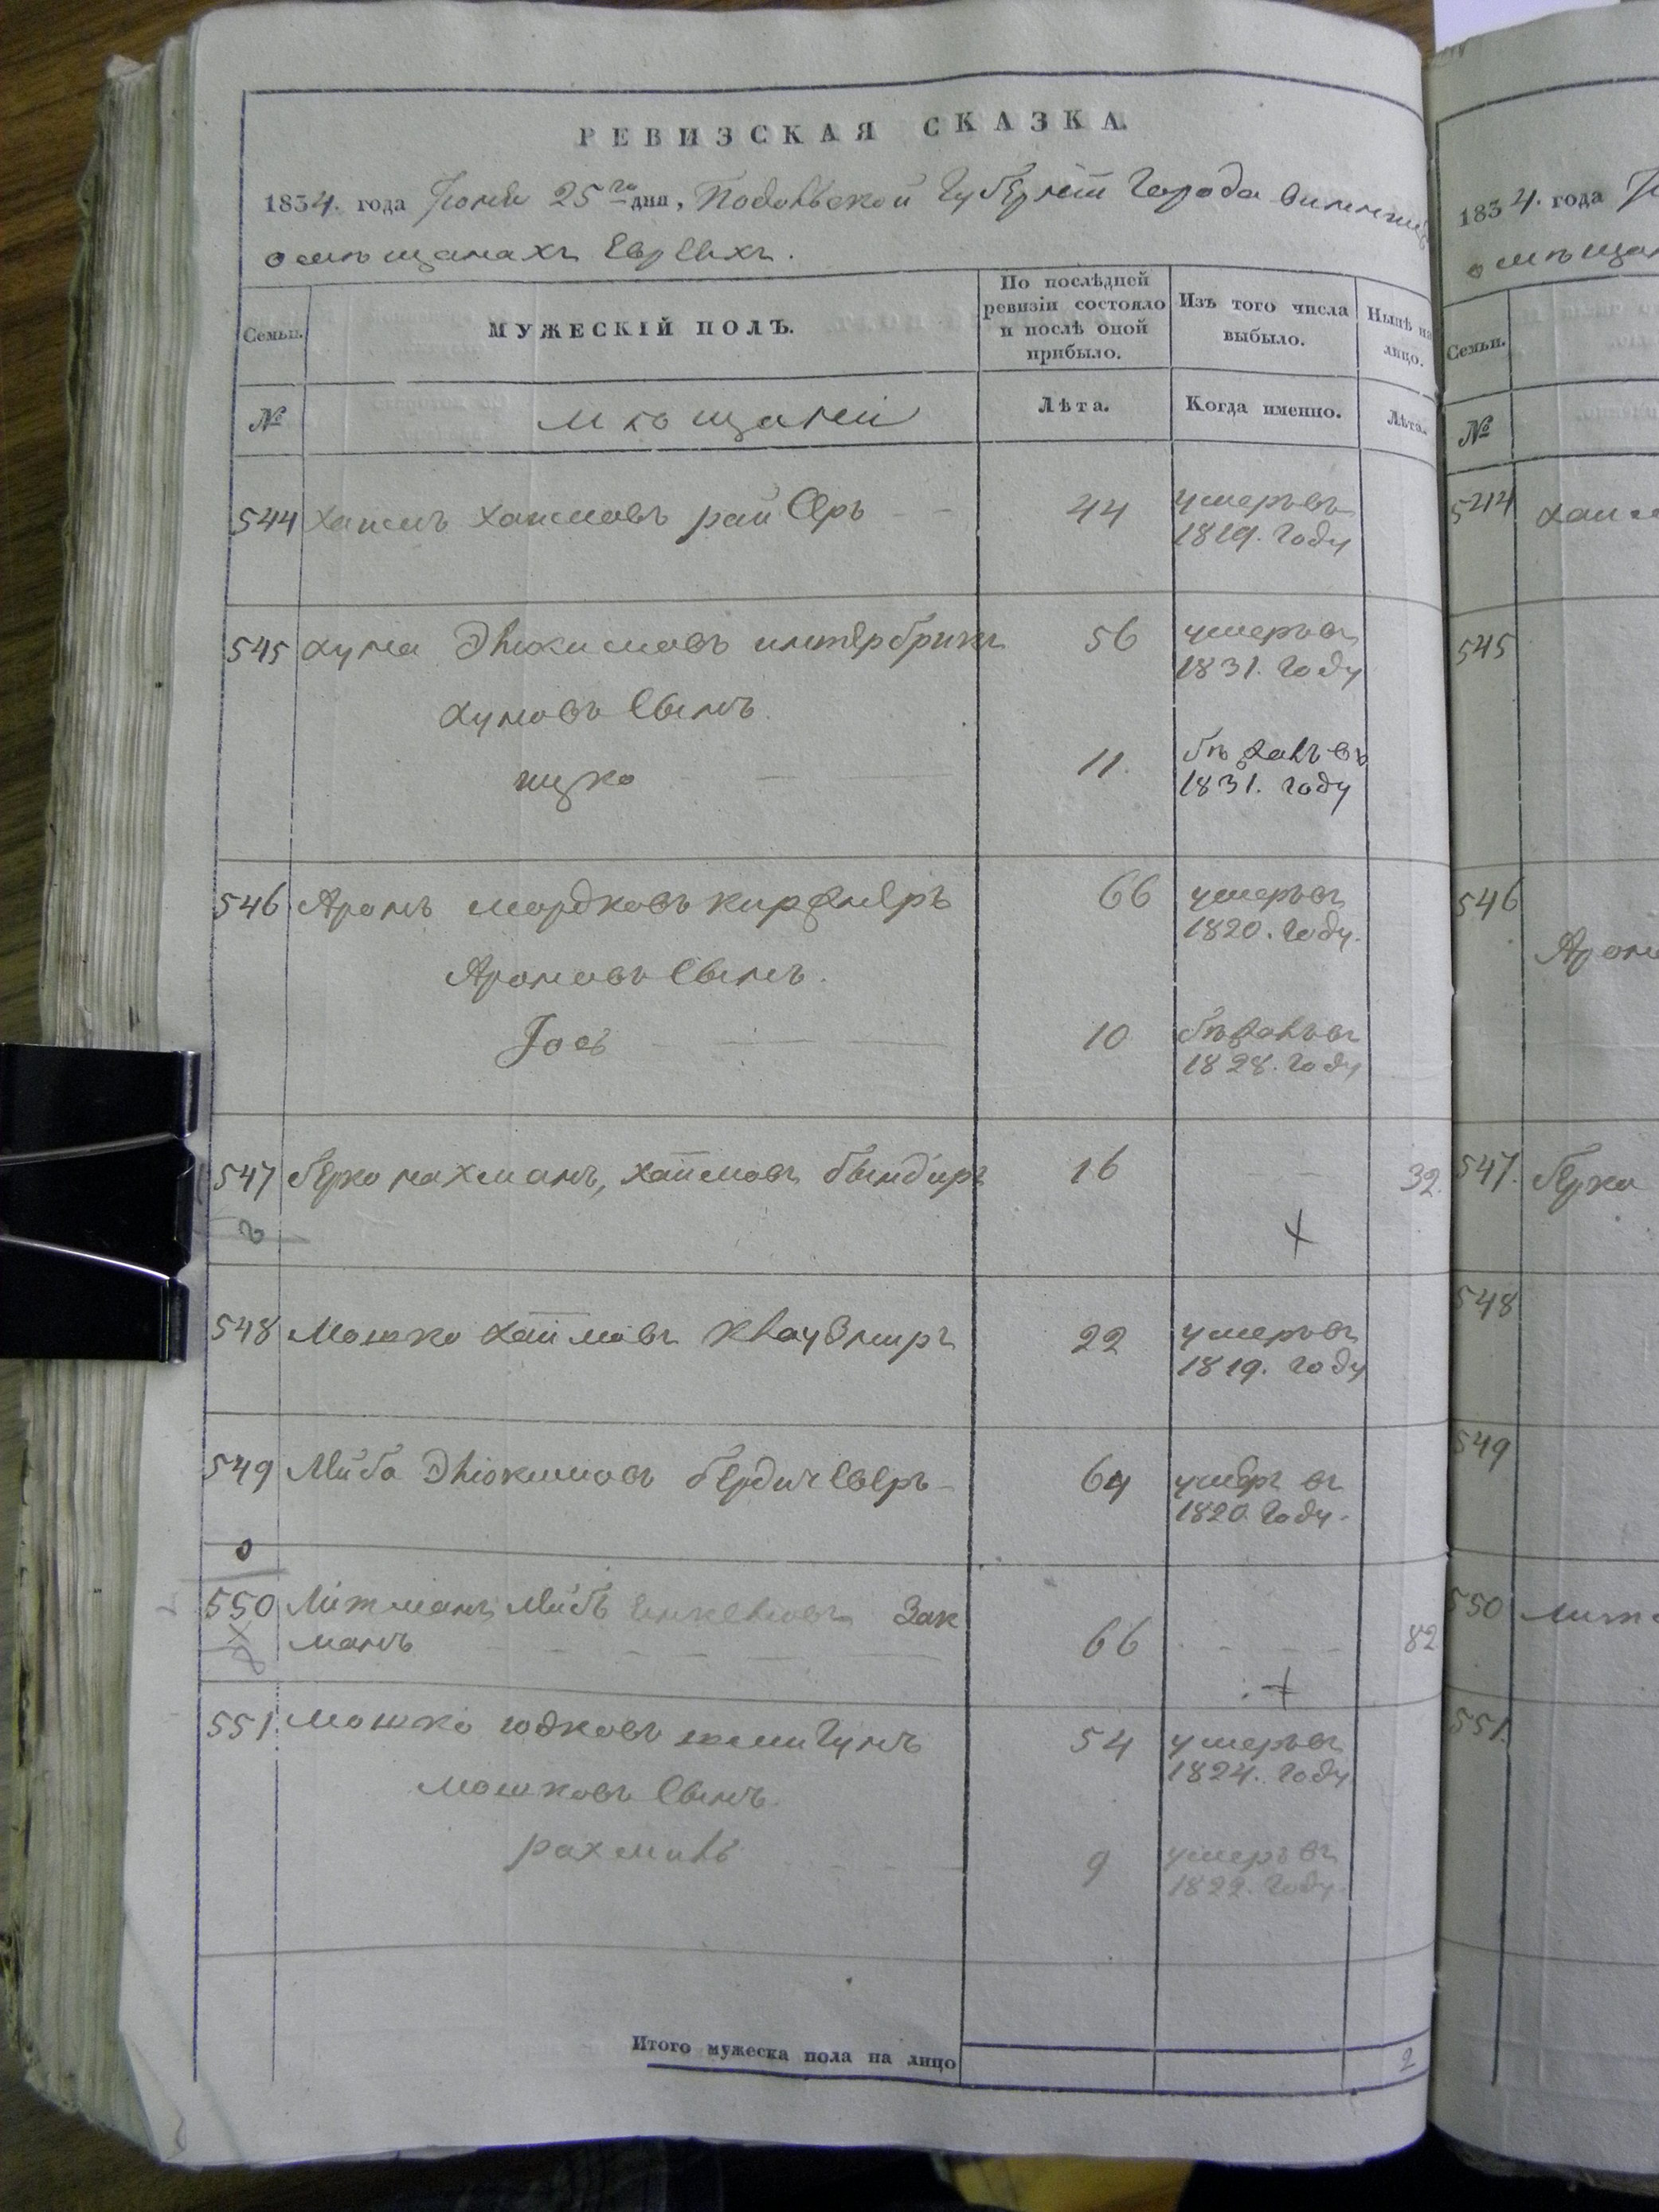 РЕВИЗСКАЯ СКАЗКА.
1834. года Іюня 25го дня, Подольской Губерніи Города Винницы
о мѣщанахъ Евреяхъ.
Семьи.
МУЖЕСКІЙ ПОЛЪ.
По послѣдней ревизіи состояло и послѣ оной прибыло.
Изъ того числа выбыло.
Нынѣ на лицо.
№
Мѣщане
Лѣта.
Когда именно.
Лѣта.
544 Хаимъ Хаимовъ райсеръ 44 умеръ въ
1819. году
545 Хуна Эліокимовъ 56 умеръ въ
1831. году
Хуновъ Сынъ
ицко 11. бѣжалъ въ
1831. году
546 Аронъ мордковъ 66 умеръ въ
1820. году.
Ароновъ Сынъ.
Іось 10 бѣжалъ въ
1828. году
547 берко нахманъ, хаимовъ 16 32.
548 Мошко хаимовъ 22 умеръ въ
1819. году
549 Лейба Эліокимовъ бердичеверъ 64 умеръ въ
1820 году.
550 Литманъ Лейбъ Зак
манъ 66 82
551. Мошко юдковъ 54 умеръ въ
1824. году
мошковъ Сынъ.
рахмиль 9 умеръ въ
1822. году.
Итого мужеска пола на лицо 2
1834. года
Семьи.
№
544
545
546
Арон
547. берко
548
549
550
551.